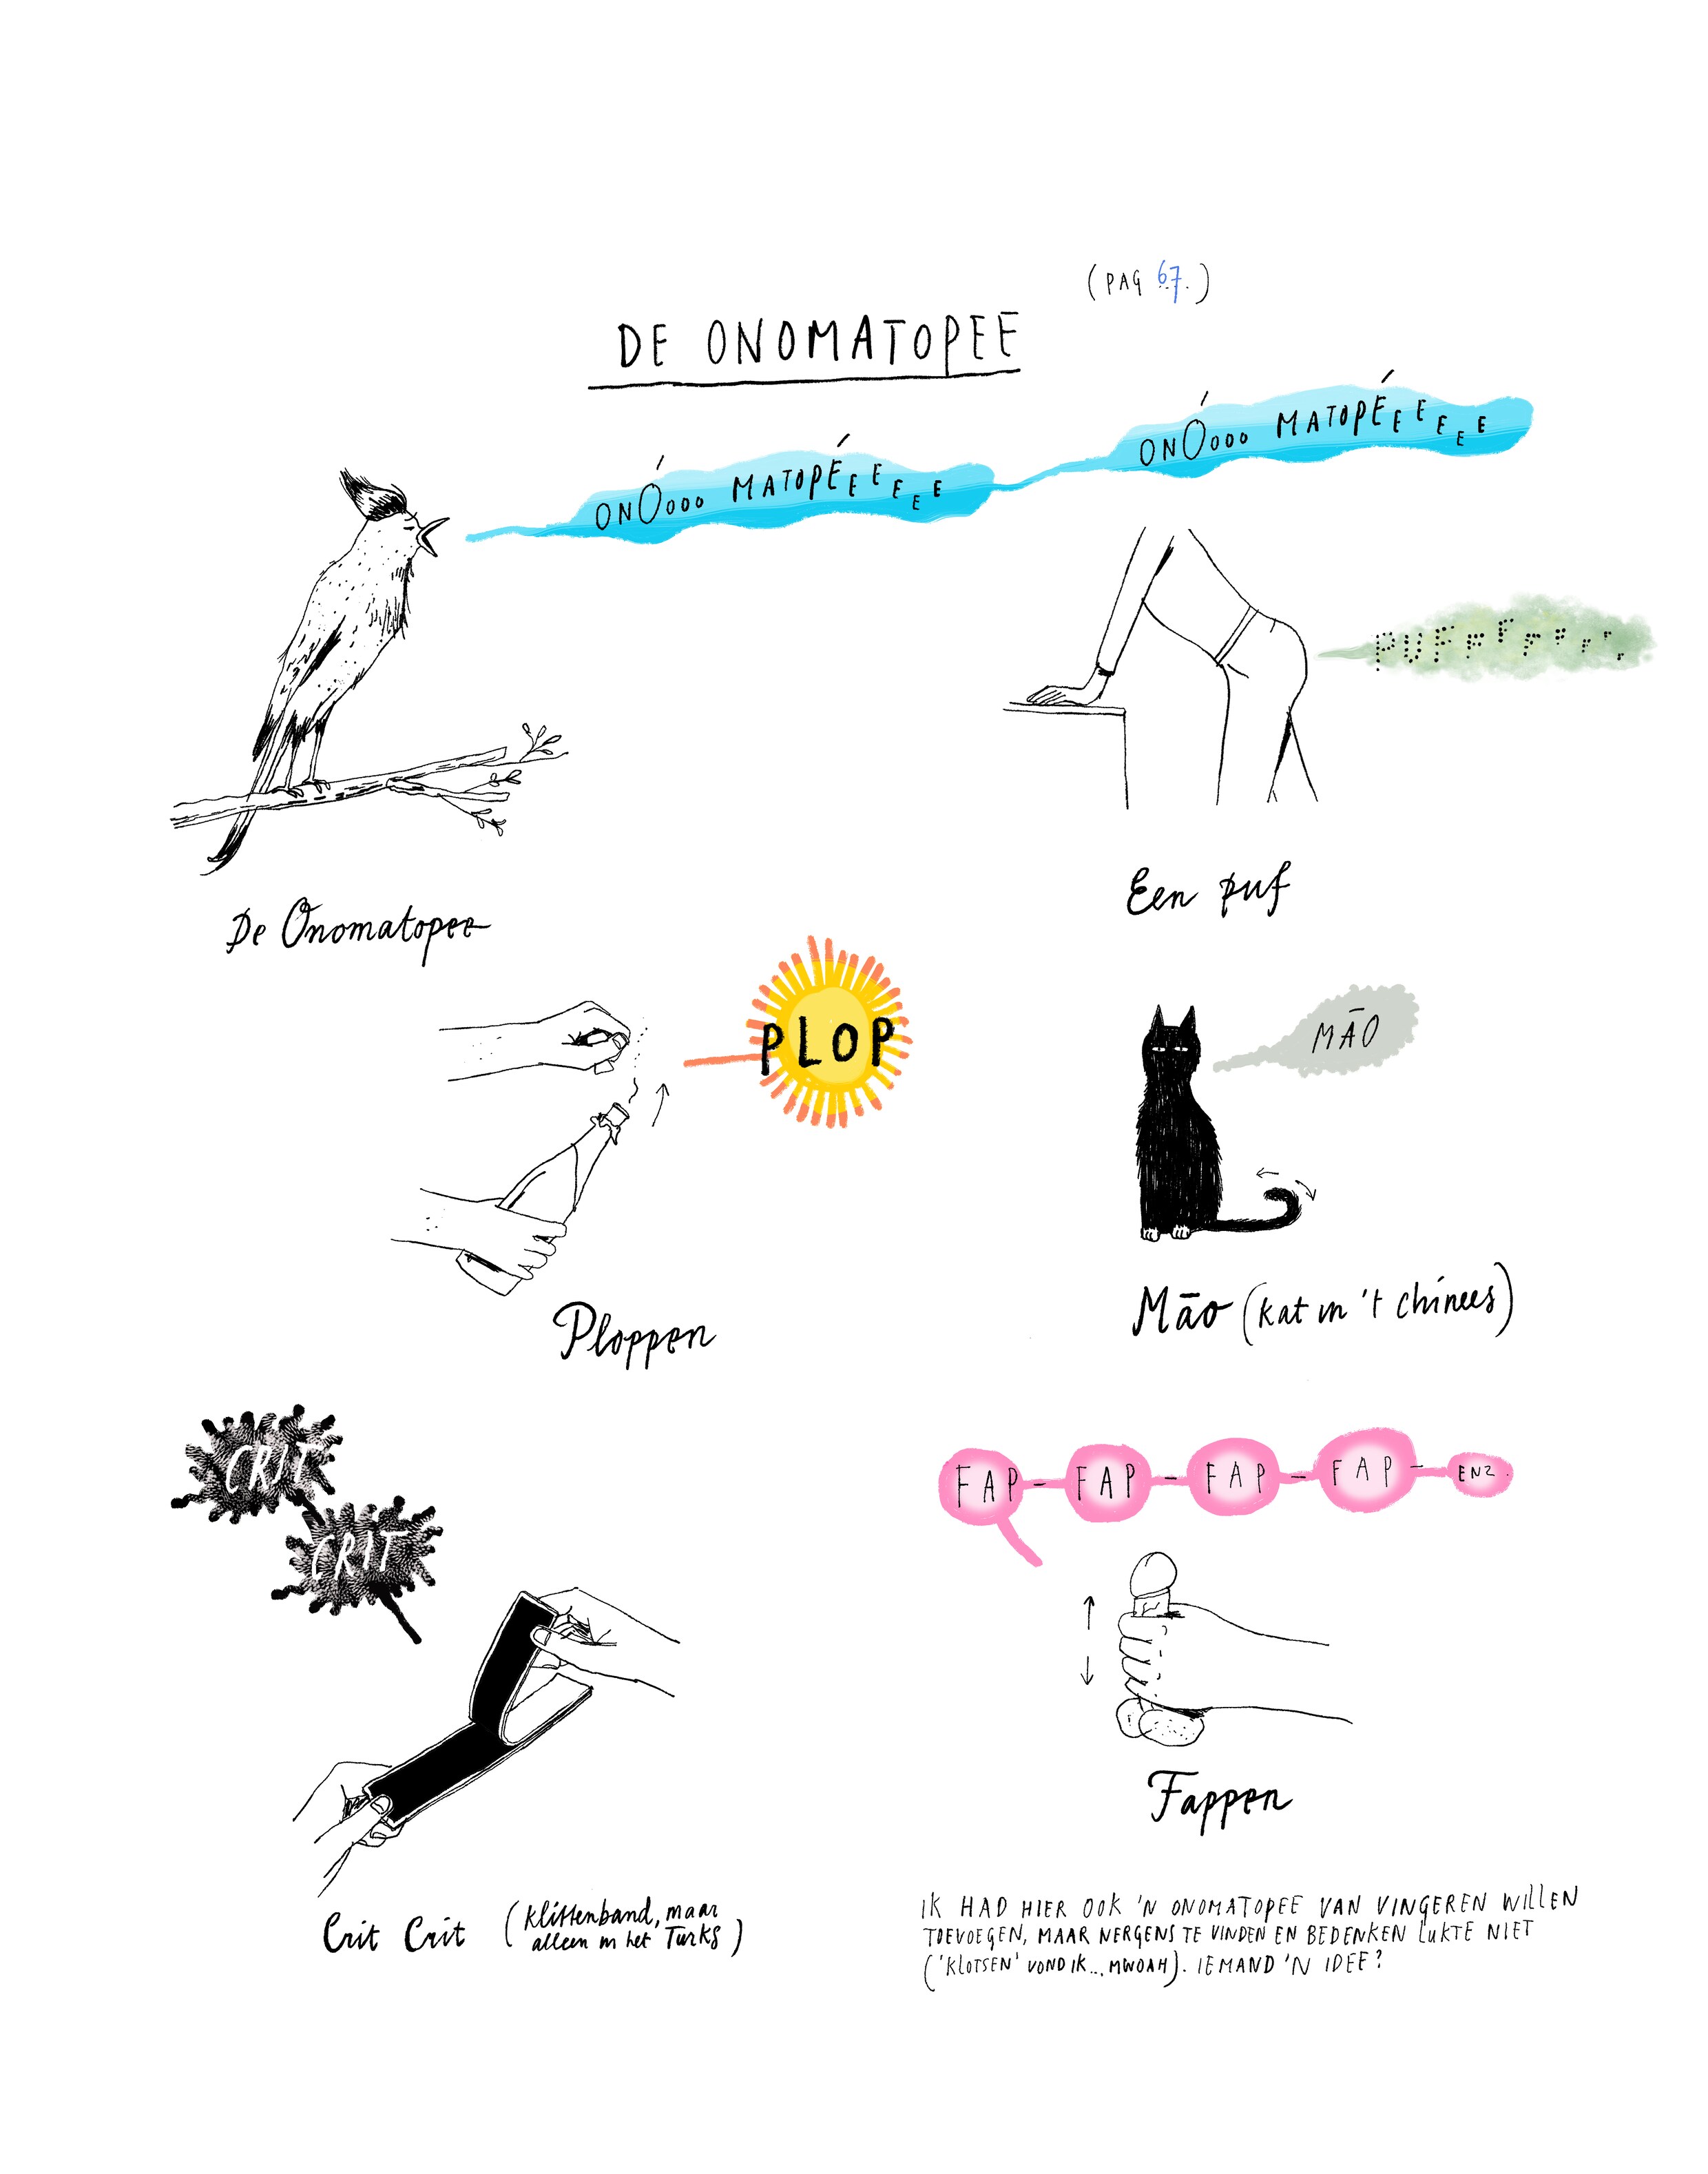 (PAG 67.)
DE ONOMATOPEE
ONÓOOO MATOPÉEEEEE
ONÓOOO MATOPÉEEEEE
PUFFFFFFFF
De Onomatopee
Een puf
PLOP
MĀO
Ploppen
Māo (kat in 't chinees)
CRIT
CRIT
FAP - FAP - FAP - FAP - ENZ.
Fappen
Crit Crit (klittenband, maar
alleen in het Turks)
IK HAD HIER OOK 'N ONOMATOPEE VAN VINGEREN WILLEN
TOEVOEGEN, MAAR NERGENS TE VINDEN EN BEDENKEN LUKTE NIET
('KLOTSEN' VOND IK... MWOAH). IEMAND 'N IDEE?